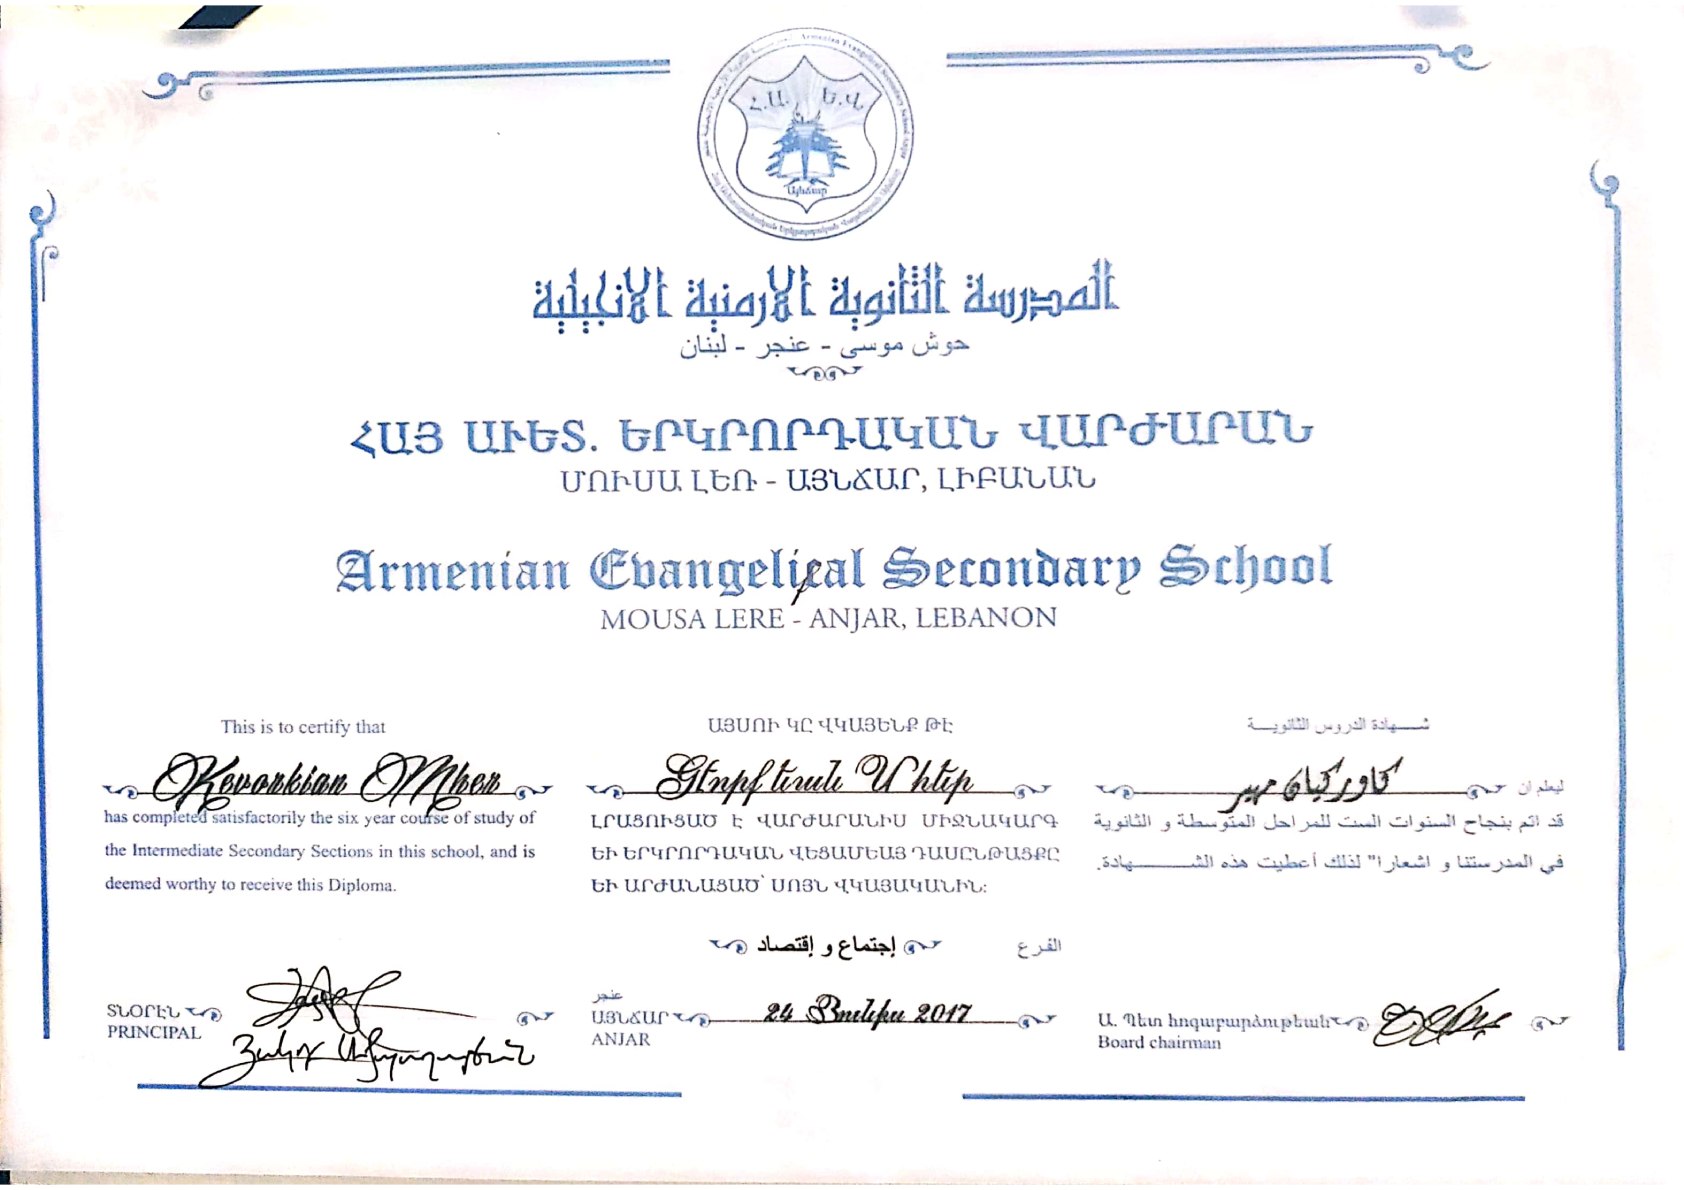 Հ.Ա. Ե.Վ.
Այնճար
المدرسة الثانوية الارمنية الانجيلية
حوش موسى - عنجر - لبنان
ՀԱՅ ԱՒԵՏ. ԵՐԿՐՈՐԴԱԿԱՆ ՎԱՐԺԱՐԱՆ
ՄՈՒՍԱ ԼԵՌ - ԱՅՆՃԱՐ, ԼԻԲԱՆԱՆ
Armenian Evangelical Secondary School
MOUSA LERE - ANJAR, LEBANON
This is to certify that
Kevorkian Mher
has completed satisfactorily the six year course of study of
the Intermediate Secondary Sections in this school, and is
deemed worthy to receive this Diploma.
ԱՅՍՈՒ ԿԸ ՎԿԱՅԵՆՔ ԹԷ
Գէորգեան Մհեր
ԼՐԱՑՈՒՑԱԾ Է ՎԱՐԺԱՐԱՆԻՍ ՄԻՋՆԱԿԱՐԳ
ԵՒ ԵՐԿՐՈՐԴԱԿԱՆ ՎԵՑԱՄԵԱՅ ԴԱՍԸՆԹԱՑՔԸ
ԵՒ ԱՐԺԱՆԱՑԱԾ՝ ՍՈՅՆ ՎԿԱՅԱԿԱՆԻՆ։
شـــهادة الدروس الثانويـــة
ليعلم ان كاوركيان مهير
قد اتم بنجاح السنوات الست للمراحل المتوسطة و الثانوية
في المدرستنا و اشعارا" لذلك أعطيت هذه الشـــــــهادة.
الفرع إجتماع و إقتصاد
ՏՆՕՐԷՆ
PRINCIPAL
عنجر
ԱՅՆՃԱՐ 24 Յունիս 2017
ANJAR
Ա. Պետ հոգաբարձութեան
Board chairman